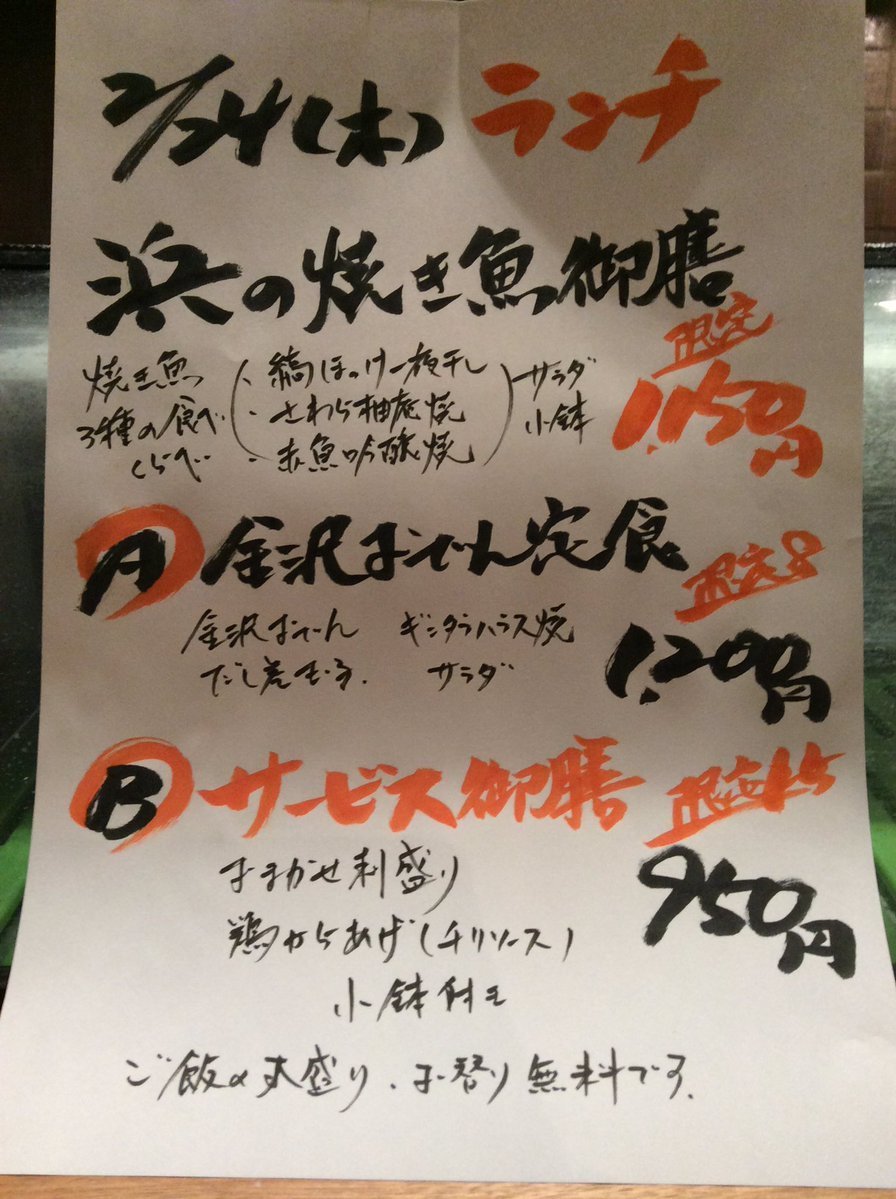 2/24(木) ランチ
浜の焼き魚御膳
限定
1,150円
焼き魚
3種の食べ
くらべ
・縞ほっけ一夜干し
・さわら柚庵焼
・赤魚吟醸焼
サラダ
小鉢
A 金沢おでん定食
限定8
1,200円
金沢おでん ギンダラハラス焼
だし巻玉子 サラダ
B サービス御膳
限定15
950円
おまかせ刺盛り
鶏からあげ(チリソース)
小鉢付き
ご飯の大盛り、お替り無料です。